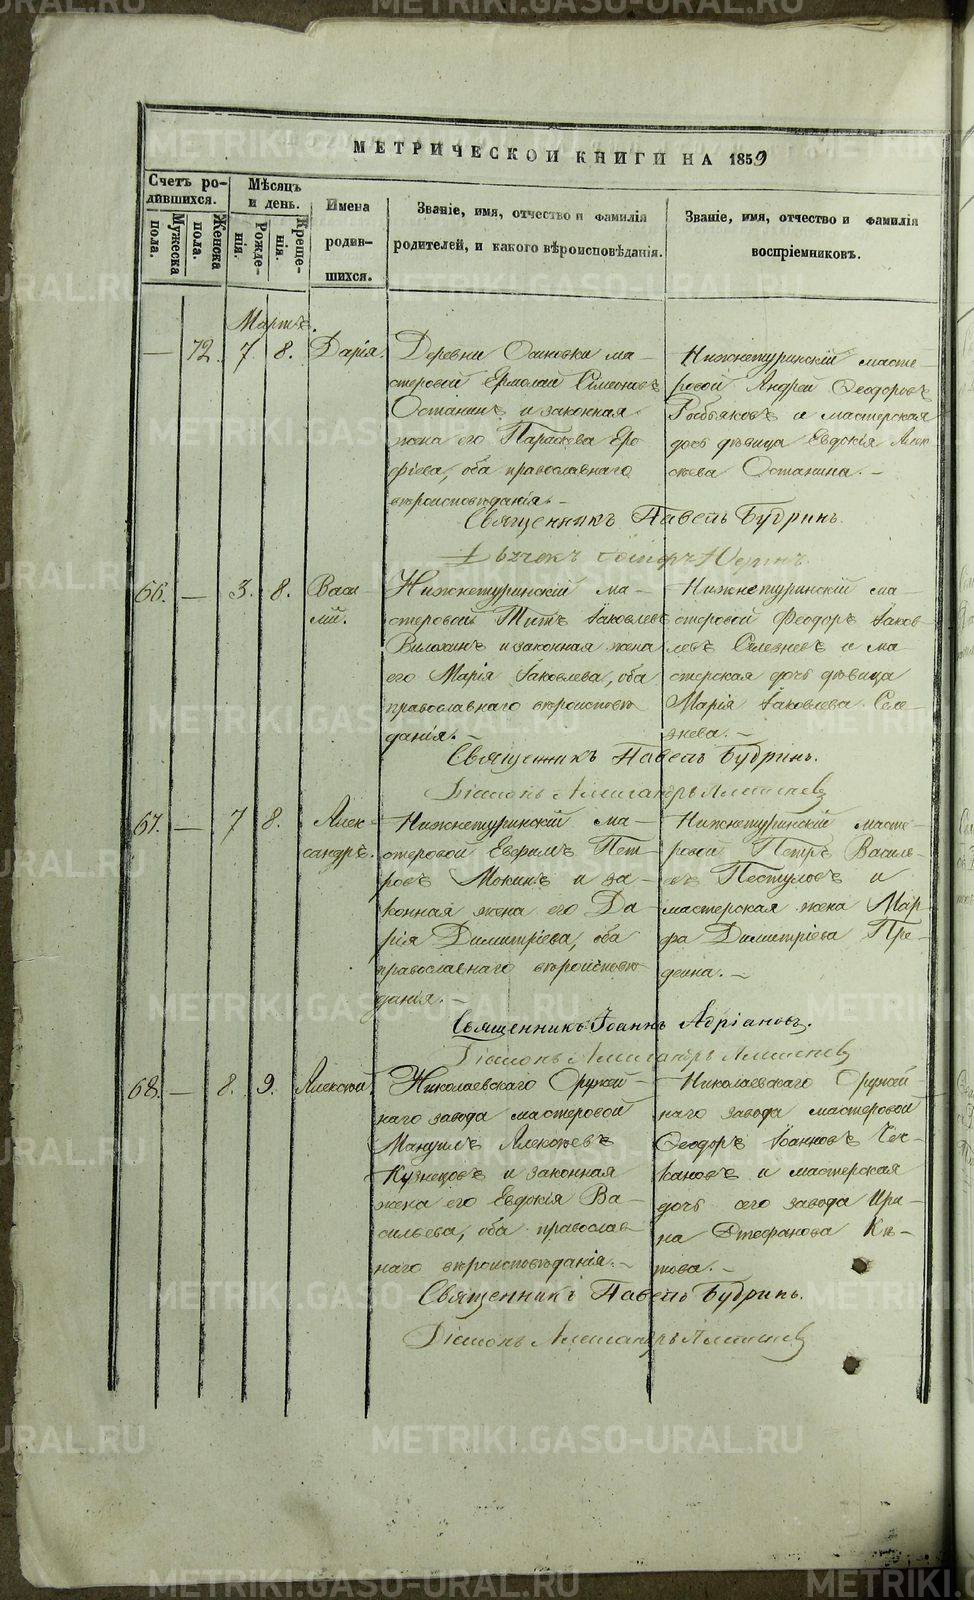 METRIKI.GASO-URAL.RU
МЕТРИЧЕСКОЙ КНИГИ НА 1859
Счетъ ро-
дившихся.
Мѣсяцъ
и день.
Имена
родив-
шихся.
Званіе, имя, отчество и фамилія
родителей, и какого вѣроисповѣданія.
Званіе, имя, отчество и фамилія
воспріемниковъ.
Мужеска
пола.
Женска
пола.
Рожде-
нія.
Креще-
нія.
Мартъ.
— 72. 7. 8. Дарія.
Деревни Осиновки ма-
стеровой Ермолай Симеоновъ
Останинъ и законная
жена его Параскева Еро-
фіева, оба православнаго
вѣроисповѣданія.-
Нижнетуринскій масте-
ровой Андрей Ѳеодоровъ
и мастерская
дочь дѣвица Евдокія Алек-
сѣева Останина.-
Священникъ Павелъ Будринъ.
66. — 3. 8. Васи-
лій.
Нижнетуринскій ма-
стеровой Титъ Іаковлевъ
и законная жена
его Марія Іаковлева, оба
православнаго вѣроисповѣ-
данія.-
Нижнетуринскій ма-
стеровой Феодоръ Іаков-
левъ Селезневъ и ма-
стерская дочь дѣвица
Марія Іаковлева Селе-
знева.-
Священникъ Павелъ Будринъ.
Діаконъ Александръ
67. — 7 8. Алек-
сандръ.
Нижнетуринскій ма-
стеровой Евфимъ Пет-
ровъ Мокинъ и за-
конная жена его Да-
рія Димитріева, оба
православнаго вѣроисповѣ-
данія.-
Нижнетуринскій масте-
ровой Петръ Василь-
евъ Пестуловъ и
мастерская жена Мар-
фа Димитріева Пре-
деина.-
Священникъ Іоаннъ Адріановъ.
Діаконъ Александръ
68. — 8. 9. Алексѣй.
Николаевскаго Оружей-
наго завода мастеровой
Мануилъ Алексѣевъ
Кузнецовъ и законная
жена его Евдокія Ва-
сильева, оба православ-
наго вѣроисповѣданія.-
Николаевскаго Оружей-
наго завода мастеровой
Ѳеодоръ Іоанновъ Чек-
кановъ и мастерская
дочь сего завода Ири-
на Стефанова Ки-
това.-
Священникъ Павелъ Будринъ.
Діаконъ Александръ